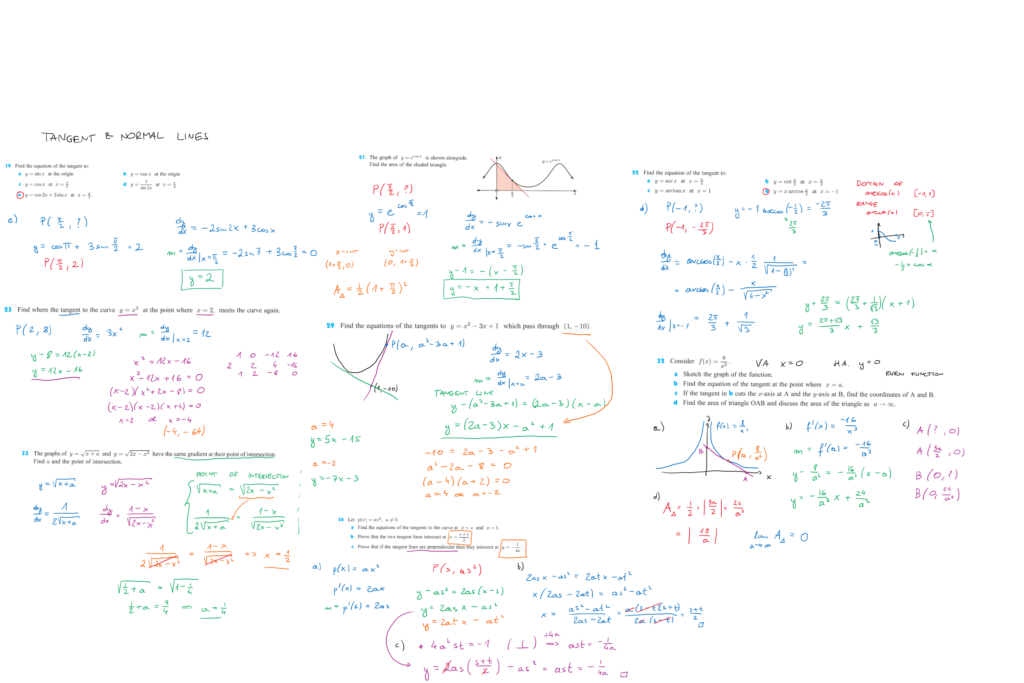 TANGENT & NORMAL LINES
19 Find the equation of the tangent to:
a y = sin x at the origin
b y = tan x at the origin
c y = cos x at x = π/6
d y = 1/(sin 2x) at x = π/4
e y = cos 2x + 3 sin x at x = π/2
e) P(π/2, ?)
y = cos π + 3 sin π/2 = 2
P(π/2, 2)
dy/dx = -2sin2x + 3cosx
m = dy/dx|x=π/2 = -2sin π + 3cos π/2 = 0
y = 2
21 The graph of y = e^(cos x) is shown alongside.
Find the area of the shaded triangle.
y = e^(cos x)
P(π/2, ?)
y = e^(cos π/2) = 1
P(π/2, 1)
dy/dx = -sinx e^(cosx)
m = dy/dx|x=π/2 = -sin π/2 · e^(cos π/2) = -1
y-1 = -(x - π/2)
y = -x + 1 + π/2
x-int
(1+π/2, 0)
y-int
(0, 1+π/2)
A△ = 1/2 (1 + π/2)²
c y = arctan x at x = 1
DOMAIN OF
arccos(x) [-1,1]
RANGE
arccos(x) [0, π]
d) P(-1, ?)
y = -1 arccos(-1/2) = -2π/3
P(-1, -2π/3)
arccos(-1/2) = α
-1/2 = cos α
dy/dx = arccos(x/2) - x · 1/2 · 1/√(1-(x/2)²) =
= arccos(x/2) - x/√(4-x²)
dy/dx|x=-1 = 2π/3 + 1/√3
y + 2π/3 = (2π/3 + 1/√3)(x+1)
y = (2π+√3)/3 x + √3/3
23 Find where the tangent to the curve y = x³ at the point where x = 2, meets the curve again.
P(2, 8)
dy/dx = 3x²
m = dy/dx|x=2 = 12
y - 8 = 12(x-2)
y = 12x - 16
x³ = 12x - 16
x³ - 12x + 16 = 0
(x-2)(x²+2x-8) = 0
(x-2)(x-2)(x+4) = 0
x=2 or x=-4
(-4, -64)
1 0 -12 16
2 2 4 -16
1 2 -8 0
29 Find the equations of the tangents to y = x² - 3x + 1 which pass through (1, -10).
P(a, a²-3a+1)
(1,-10)
dy/dx = 2x - 3
m = dy/dx|x=a = 2a - 3
TANGENT LINE
y - (a²-3a+1) = (2a-3)(x-a)
y = (2a-3)x - a² + 1
-10 = 2a - 3 - a² + 1
a² - 2a - 8 = 0
(a-4)(a+2) = 0
a=4 or a=-2
a = 4
y = 5x - 15
a = -2
y = -7x - 3
32 Consider f(x) = 8/x².
V.A. x = 0
H.A. y = 0
EVEN FUNCTION
a Sketch the graph of the function.
b Find the equation of the tangent at the point where x = a.
c If the tangent in b cuts the x-axis at A and the y-axis at B, find the coordinates of A and B.
d Find the area of triangle OAB and discuss the area of the triangle as a → ∞.
a)
f(x) = 8/x²
P(a, 8/a²)
B
A
x
b) f'(x) = -16/x³
m = f'(a) = -16/a³
y - 8/a² = -16/a³ (x-a)
y = -16/a³ x + 24/a²
c) A(?, 0)
A(3a/2, 0)
B(0, ?)
B(0, 24/a²)
d) A△ = 1/2 |3a/2| 24/a²
= |18/a|
lim a→∞ A△ = 0
33 The graphs of y = √(x+a) and y = √(2x-x²) have the same gradient at their point of intersection.
Find a and the point of intersection.
y = √(x+a)
dy/dx = 1/(2√(x+a))
y = √(2x-x²)
dy/dx = (1-x)/√(2x-x²)
POINT OF INTERSECTION
√(x+a) = √(2x-x²)
1/(2√(x+a)) = (1-x)/√(2x-x²)
1/(2√(2x-x²)) = (1-x)/√(2x-x²) => x = 1/2
√(1/2+a) = √(1-1/4)
1/2 + a = 3/4 => a = 1/4
34 Let p(x) = ax², a ≠ 0.
a Find the equations of the tangents to the curve at x = s and x = t.
b Prove that the two tangent lines intersect at x = (s+t)/2.
c Prove that if the tangent lines are perpendicular then they intersect at y = -1/(4a).
a) p(x) = ax²
p'(x) = 2ax
m = p'(s) = 2as
P(s, as²)
y - as² = 2as(x-s)
y = 2as x - as²
y = 2at x - at²
b)
2asx - as² = 2atx - at²
x(2as - 2at) = as² - at²
x = (as²-at²)/(2as-2at) = a(s-t)(s+t)/(2a(s-t)) = (s+t)/2
c) • 4a²st = -1 (⊥) ⟹ ÷4a ast = -1/(4a)
y = 2as((s+t)/2) - as² = ast = -1/(4a)